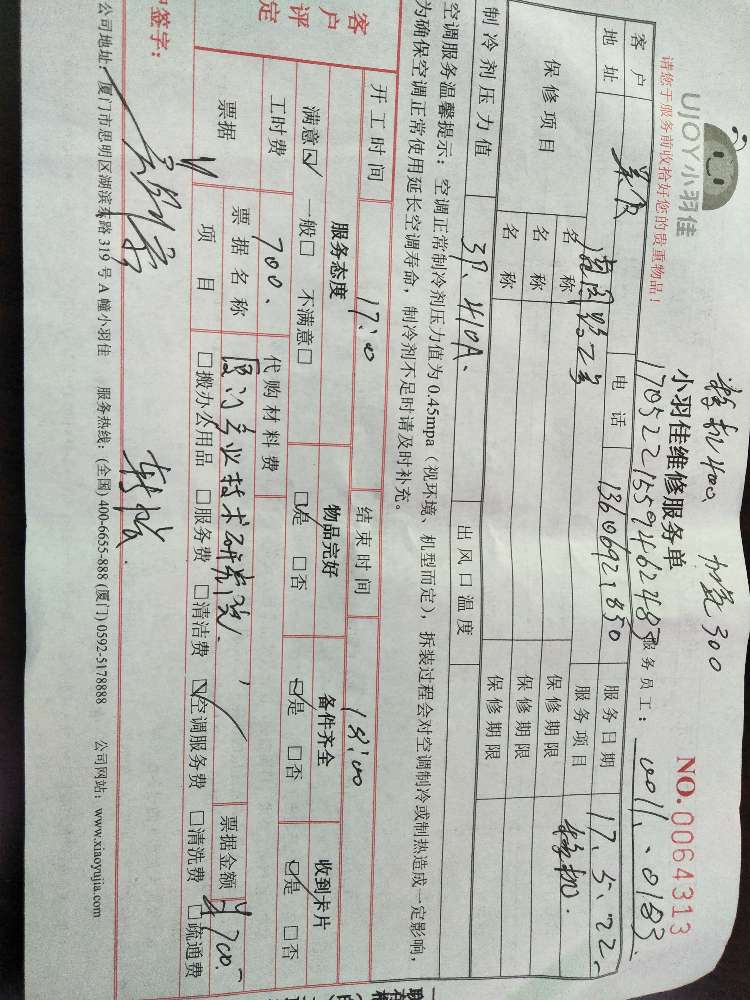 UJOY小羽佳
请您于服务前收拾好您的贵重物品！
移机400. 加氟300
小羽佳维修服务单
NO.0064313
服务员工：0011. 0183
客户 电话 服务日期 17.5.22.
地址 服务项目 移机.
保修项目 名称 保修期限
名称 保修期限
名称 保修期限
制冷剂压力值 3P. 410A. 出风口温度
空调服务温馨提示：空调正常制冷剂压力值为 0.45mpa（视环境、机型而定），拆装过程会对空调制冷或制热造成一定影响，
为确保空调正常使用延长空调寿命，制冷剂不足时请及时补充。
开工时间 17:0 结束时间 18:00
客户评定 服务态度 物品完好 备件齐全 收到卡片
满意☑ 一般□ 不满意□ ☑是 □否 ☑是 □否 ☑是 □否
工时费 700. 代购材料费
票据 票据名称 厦门产业技术研究院 票据金额 ¥700-
项目 □搬办公用品 □服务费 □清洁费 ☑空调服务费 □清洗费 □疏通费
户签字：
公司地址：厦门市思明区湖滨东路 319 号 A 幢小羽佳 服务热线：(全国) 400-6655-888 (厦门) 0592-5178888 公司网站：www.xiaoyujia.com